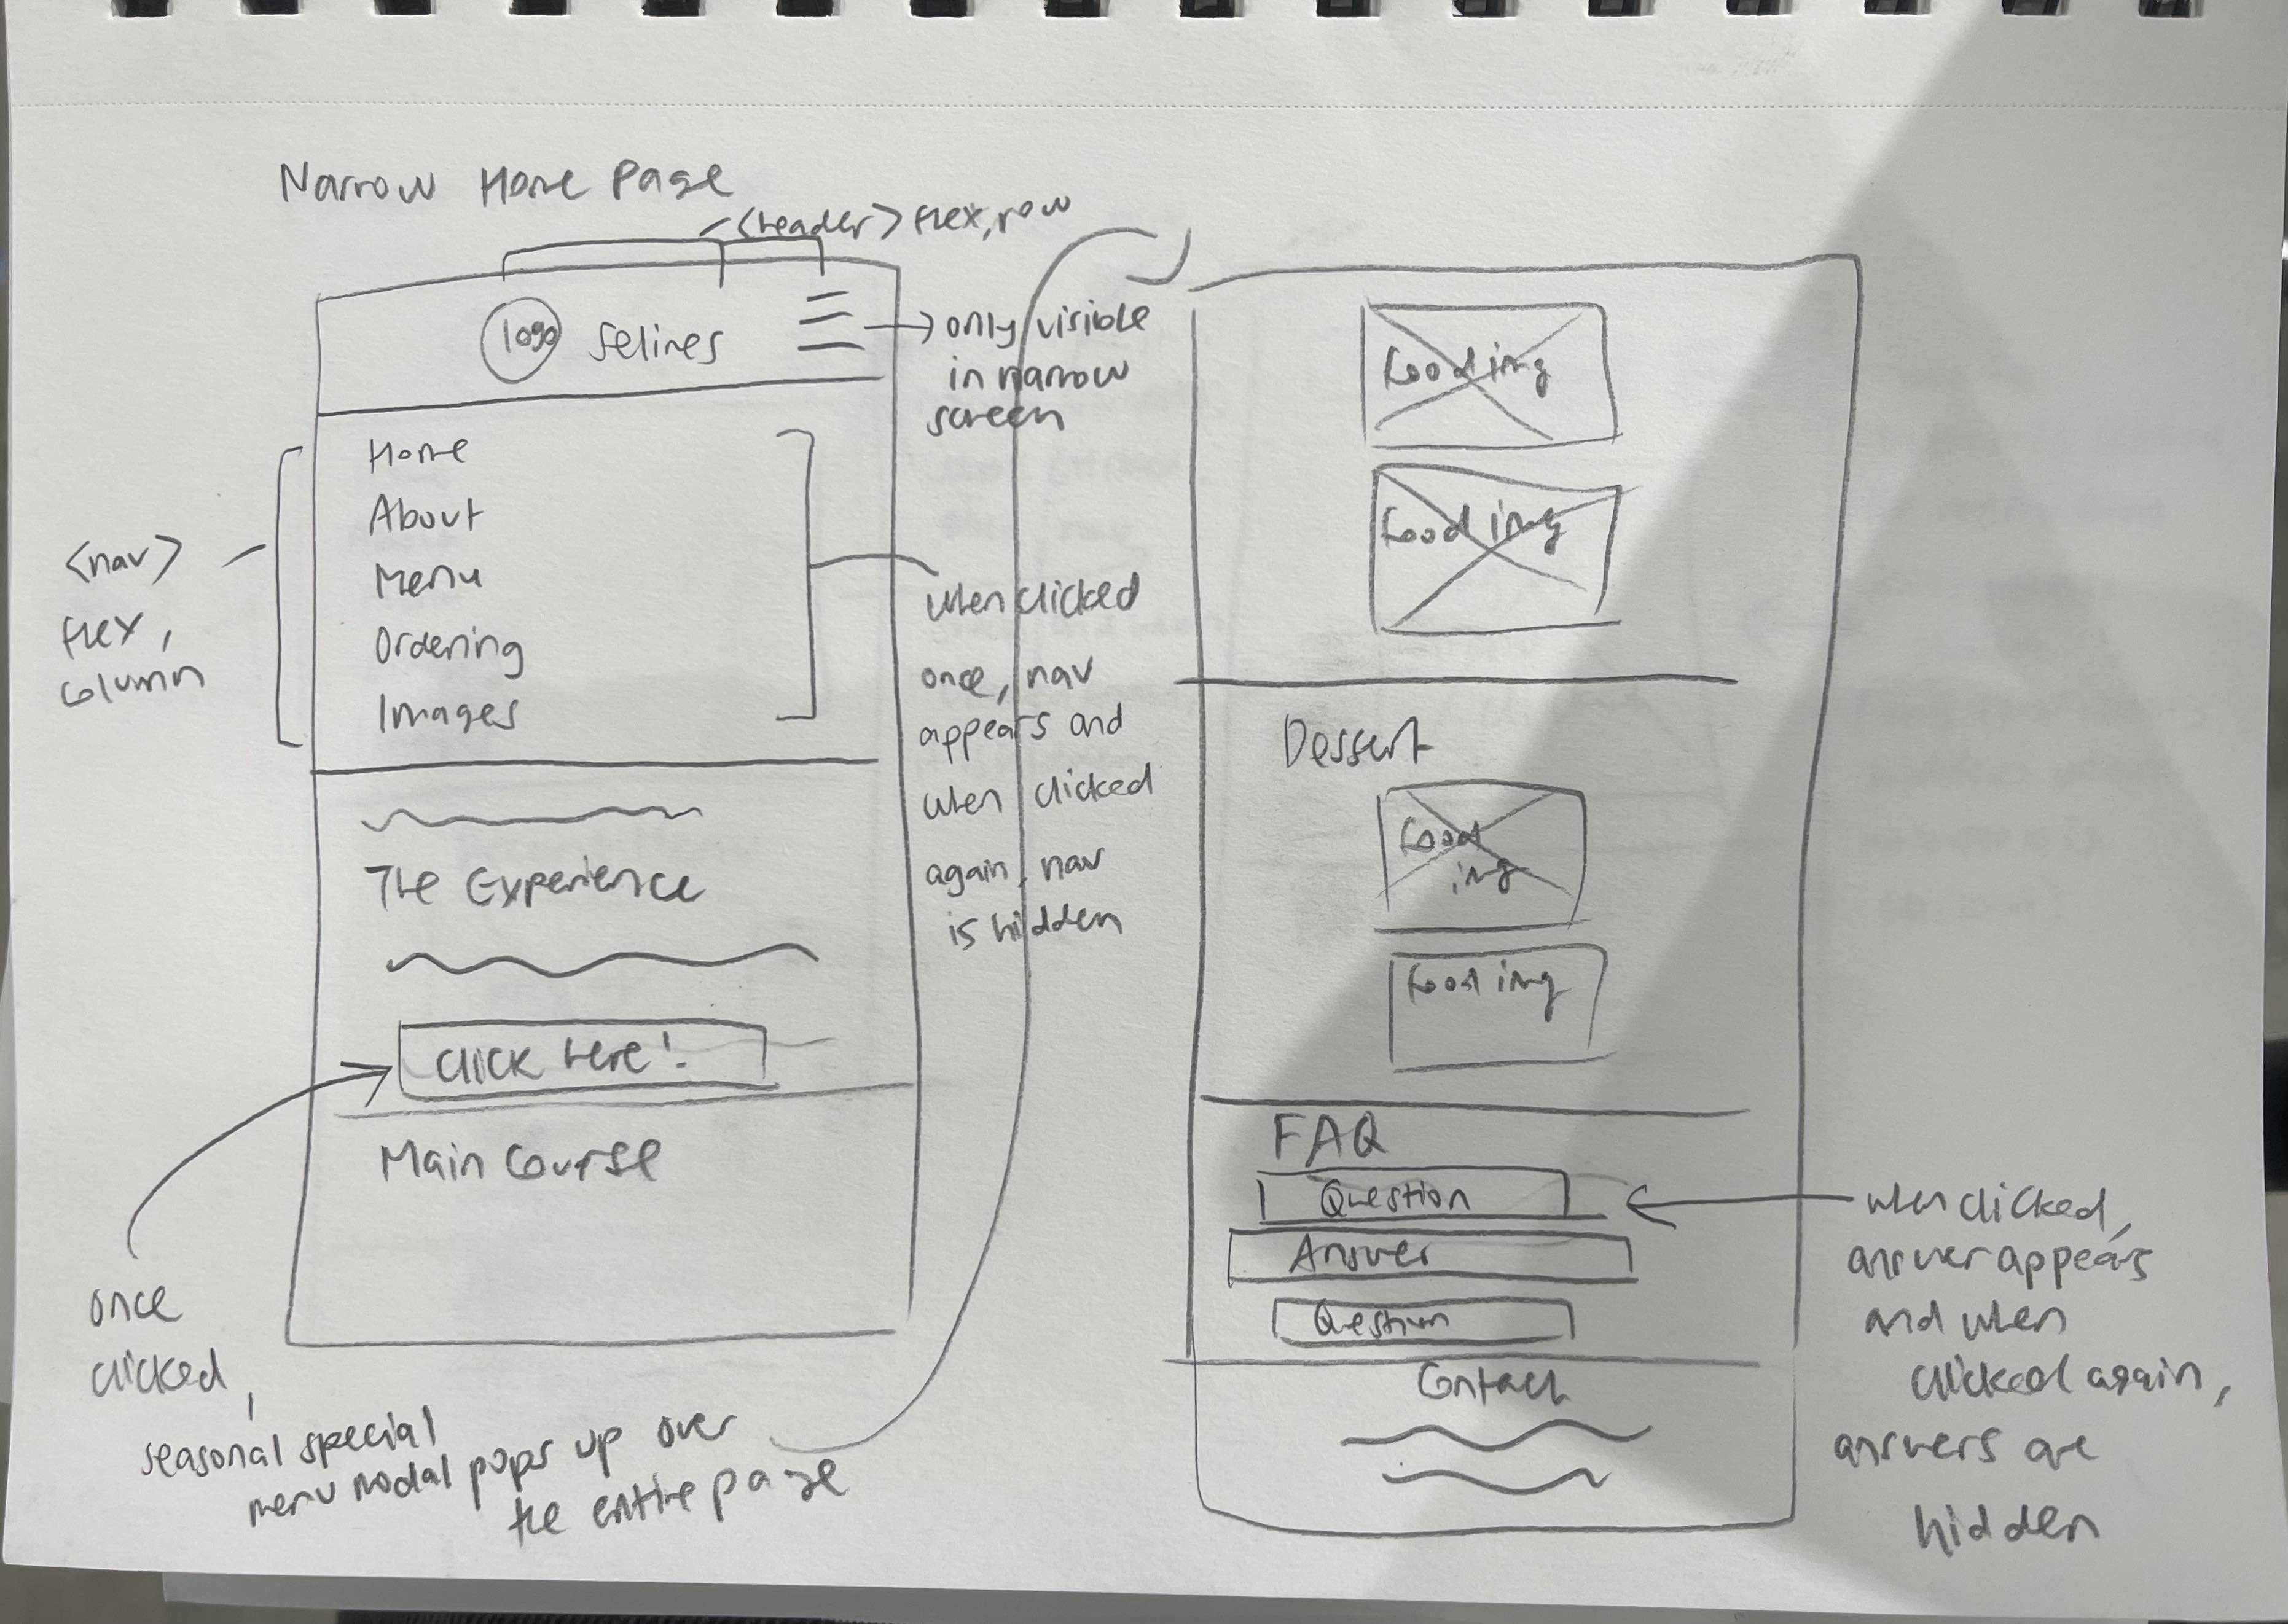 Narrow Home Page
<header> flex, row
logo Selines
only visible
in narrow
screen
Home
About
Menu
Ordering
Images
<nav>
flex,
column
when clicked
once, nav
appears and
when clicked
again, nav
is hidden
The Experience
Click here!
Main Course
once
clicked,
seasonal special
menu modal pops up over
the entire page
food img
food img
Dessert
food
img
food img
FAQ
Question
Answer
Question
when clicked,
answer appears
and when
clicked again,
answers are
hidden
Contact